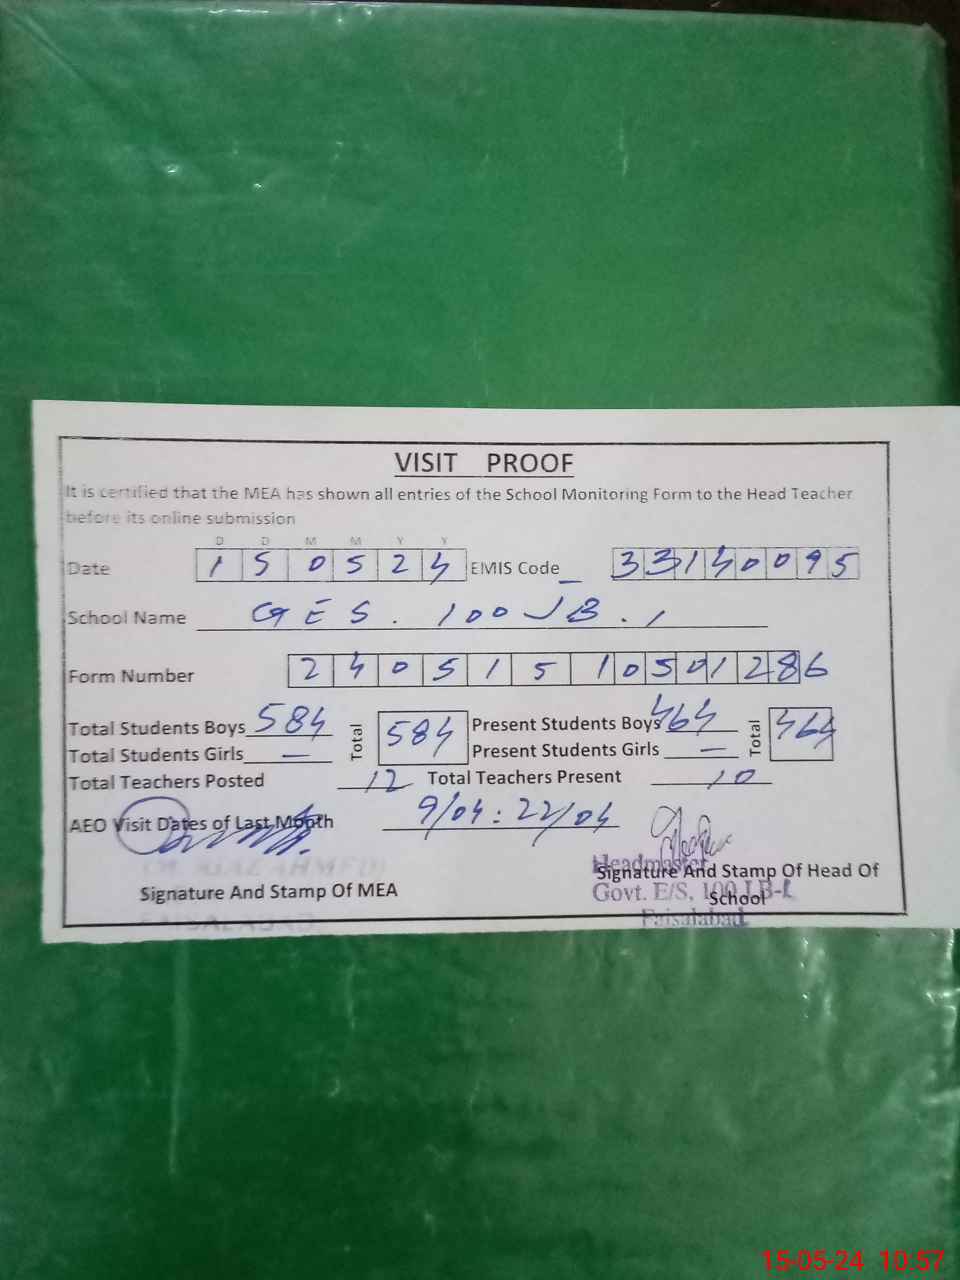 VISIT PROOF
It is certified that the MEA has shown all entries of the School Monitoring Form to the Head Teacher
before its online submission
D D M M Y Y
Date 150524 EMIS Code 33140095
School Name GES. 100 JB. 1
Form Number 24051510501286
Total Students Boys 584 Total 584 Present Students Boys 464 Total 464
Total Students Girls — Present Students Girls —
Total Teachers Posted 12 Total Teachers Present 10
AEO Visit Dates of Last Month 9/04 : 22/04
(M. RIAZ AHMED)
Signature And Stamp Of MEA
FAISALABAD
Headmaster
Signature And Stamp Of Head Of
School
Govt. E/S, 100 J.B-I
Faisalabad
15-05-24 10:57